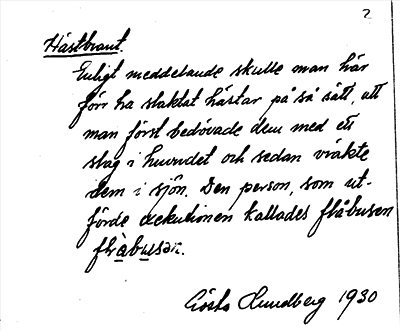 2
Hästbraut.
Enligt meddelande skulle man här
förr ha slaktat hästar på så sätt, att
man först bedövade dem med ett
slag i huvudet och sedan vräkte
dem i sjön. Den person, som ut-
förde exekutionen kallades flåbusen
flåbusən.
Gösta Lundberg 1930